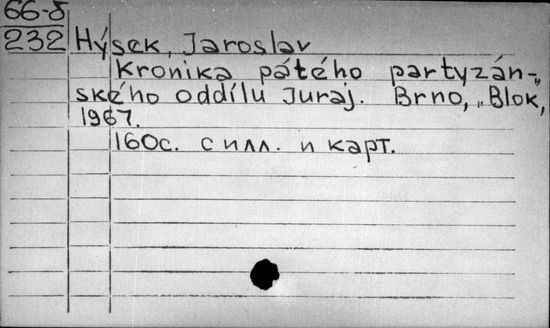 66-5
232 Hýsek, Jaroslav
Kronika pátého partyzán-
ského oddílu Juraj. Brno, „Blok,"
1967.
160с. с илл. и карт.